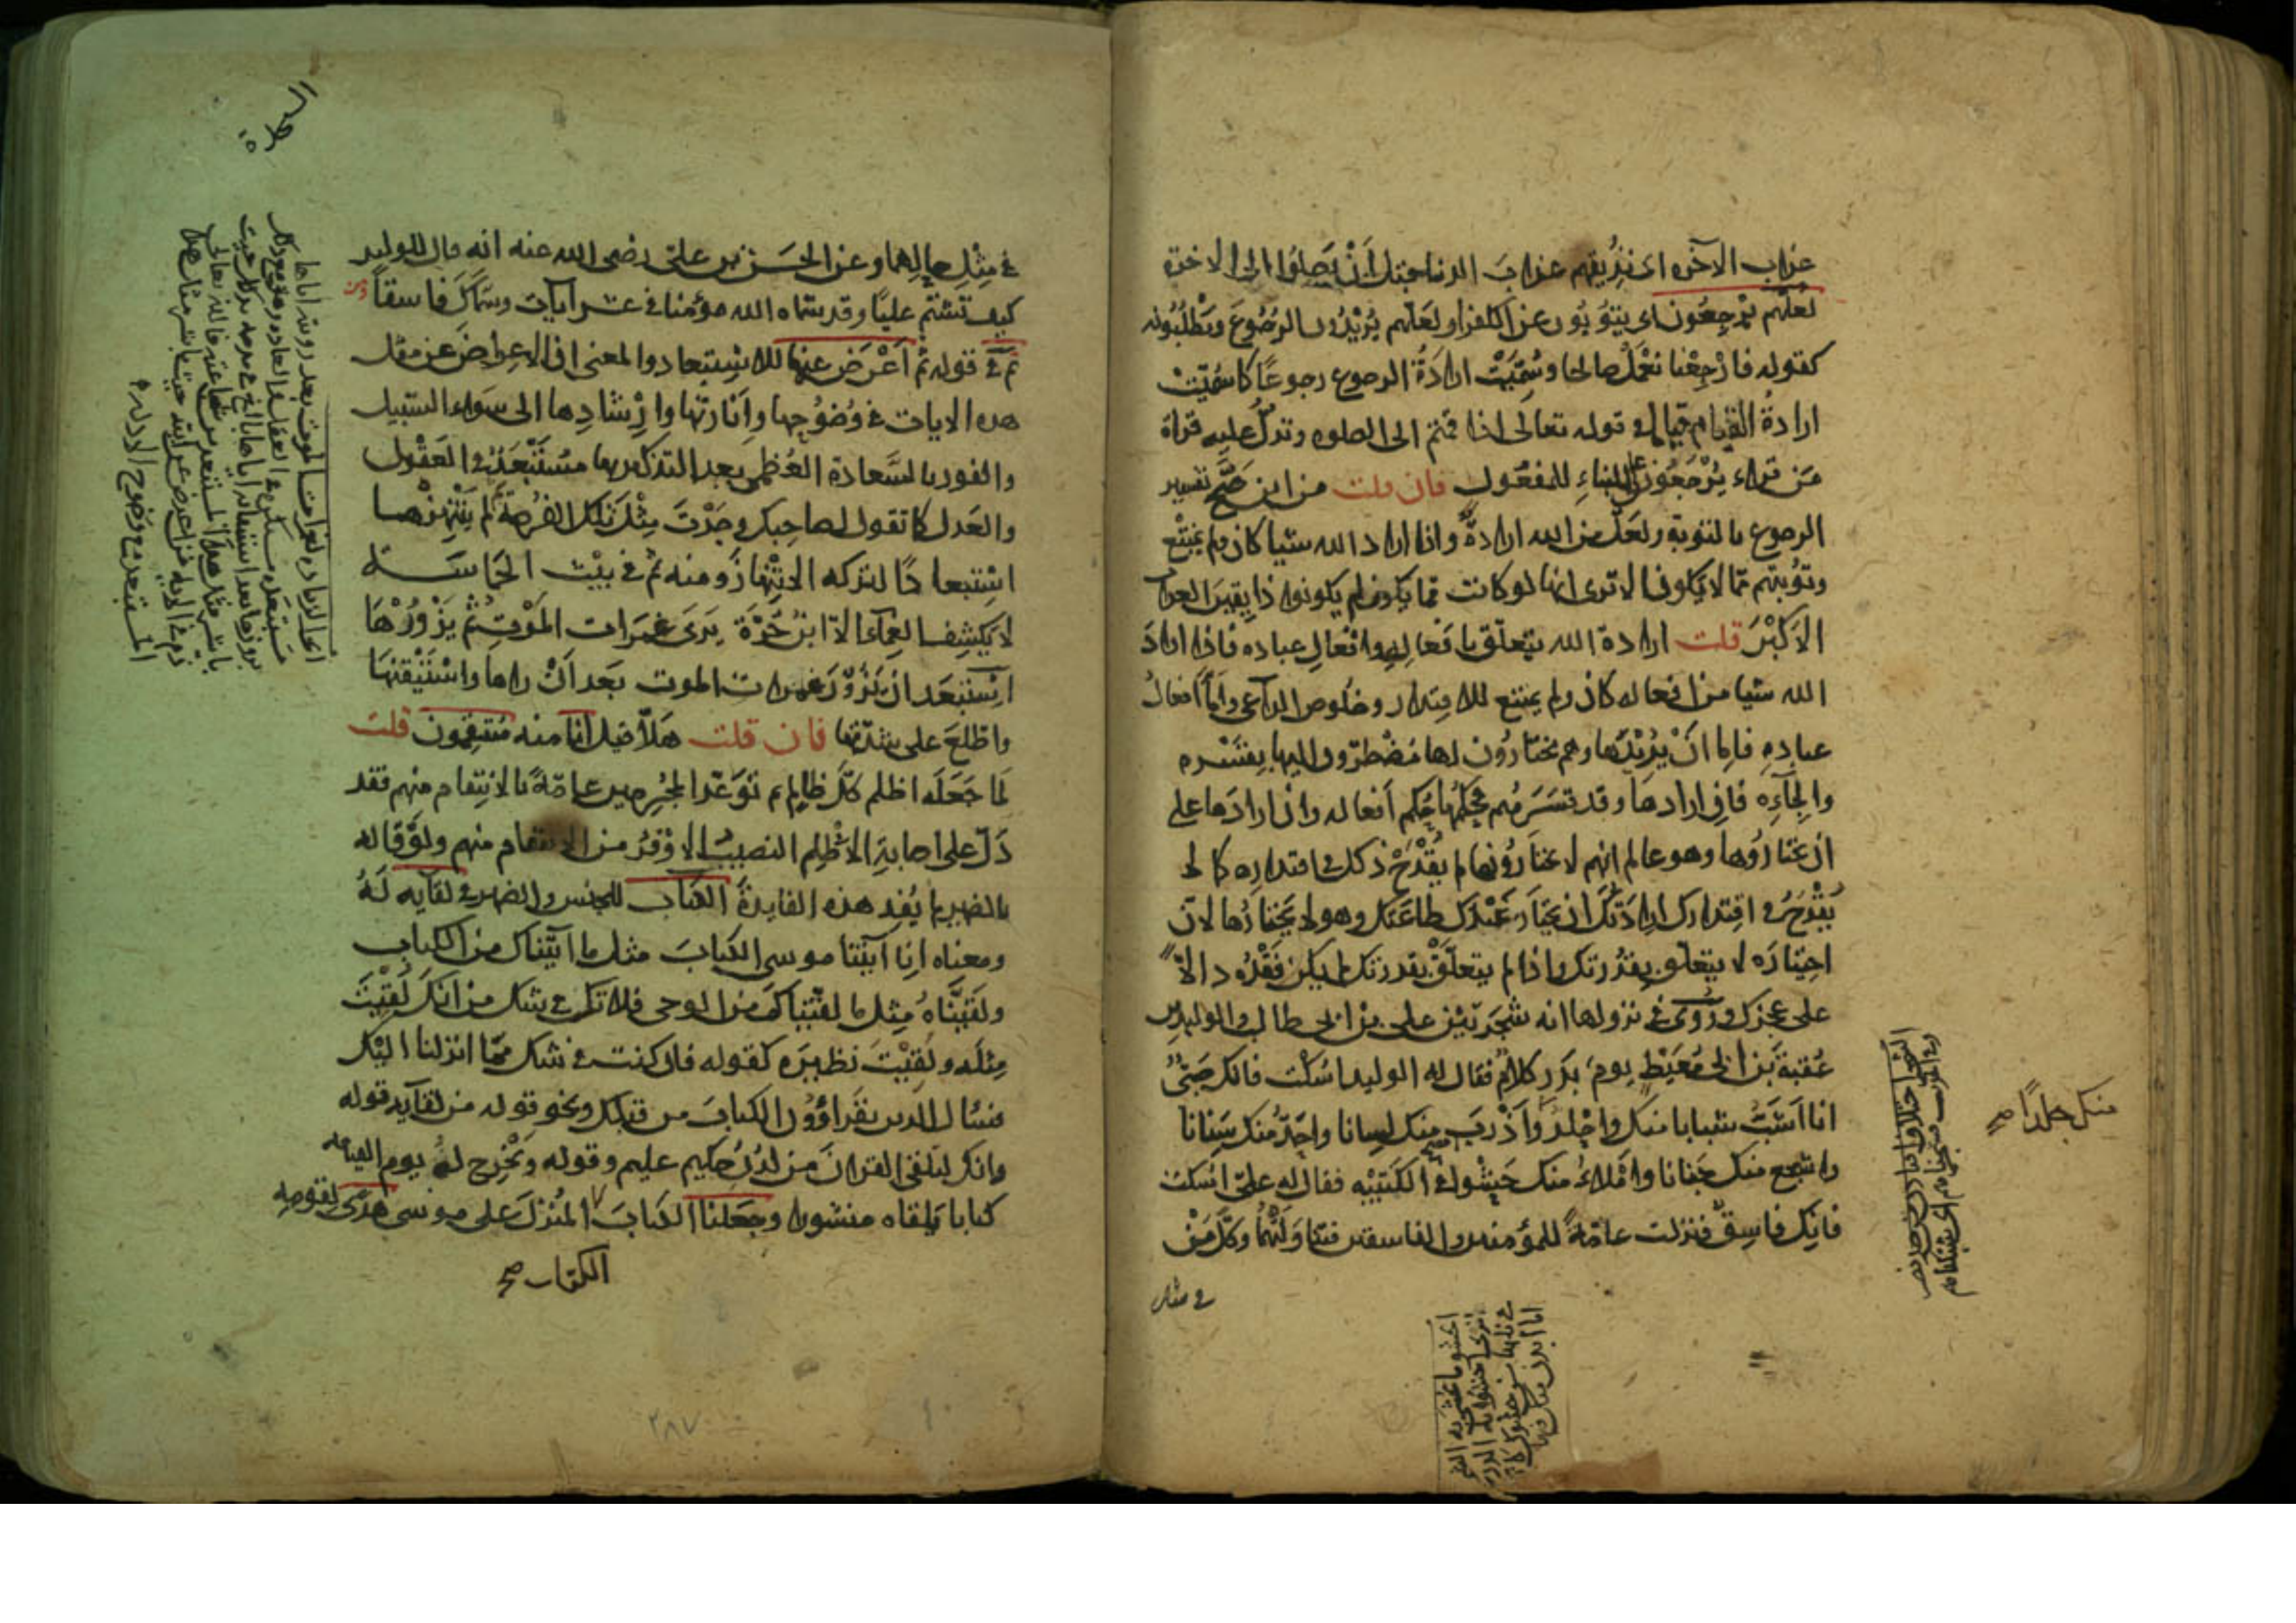 عذاب الآخرة اى نذيقهم عذابَ الدنيا قبل اَنْ يَصِلوُا الى الاخرة
لعلّهم يَرْجِعُون اى يتوُبُون عن الكفر او لعَلّهم يُرِيْدُون الرجُوعَ ويَطْلُبُونه
كقوله فارْجِعْنا نعْمَلْ صالحا وسُمّيَتْ ارادَةُ الرجوع رجوعًا كما سُمّيتْ
ارادةُ القيام قياما فى قوله تعالى اذا قمتم الى الصلوه وتدلّ عليه قراة
مَن قراء يُرْجَعُون على البناءِ للمفعُول فان قلت من اين صَحّ تفسير
الرجوع بالتوبة ولعَلّ من الله ارادةٌ واذا اراد الله شيا كان ولم يمتنِع
وتوبتهم ممّا لا يكون الا ترى انها لو كانت ممّا يكون لم يكونوا ذايقين العذاب
الاكبَر قلت ارادة الله يتعلّق بافعالِهِ وافعالِ عباده فاذا ارادَ
الله شيا من افعاله كان ولم يمتنع للاقتدار وخلُوص الداعى وامّا افعالُ
عبادِهِ فاما انْ يُرِيْدَها وهم مختارُون لها او مُضْطرّون اليها بِقسْره
والجآءِه فان ارادهَا وقد قسَرَهُم فحكمُها حُكم أفعاله وان ارادَها على
ان يختاروُها وهو عالم انهم لا يختارُونها لم يَقْدَحْ ذلك فى اقتداره كما لا
يَقْدَحُ فى اقتدارك ارادَتُكَ ان يختارَ عَبْدُك طاعَتك وهو لا يَختارُها لانّ
اختيارَه لا يتعلّق بقُدْرتك واذا لم يتعلّقْ بقدرتك لم يكن فَقْدُه دالّا
على عجزك ورُوِىَ فى نزولها انه شجَرَ بَيْن على بن ابى طالب والوليد بن
عُقبة بَن ابى مُعَيْطٍ يوم بَدْرٍ كلامٌ فقال له الوليد اسْكت فانك صَبّىٌ
انا اَشَبّ شبابا منك واجْلدُ واَذْرَبُ منك لِسانا واحَدّ منك سِنانا
واشجع منك جَنانا واَمْلاءُ منك حَشْوا فى الكَتِيْبه فقال له علىّ اسْكت
فانِك فاسِقٌ فنزلت عامّةً للمؤمنين والفاسقين فتناوَلَتْهُما وكلّ مَنْ
فى مثل
منك جلدا صح
فى مِثْلِ حالِهما وعن الحَسَن بن علىّ رضى الله عنه انه قال للوليد
كيف تشتُم عليّا وقد سمّاه الله مؤمنا فى عشر آيات وسمّاكَ فاسقاً
ثم فى قوله ثُمّ اَعْرَضَ عنها للاستِبعاد والمعنى ان الاعراضَ عن مثل
هذه الايات فى وُضُوحِها واِنارتها واِرْشادِها الى سَواء السّبيل
والفوز بالسَّعادة العُظمى بعد التذكير بها مُسْتَبْعَدٌ فى العَقْل
والعَدل كما تقول لصاحِبك وجَدْتَ مِثْل تلك الفُرصَة ثم لم يَنْتهِزْها
اسْتبعادًا لتركه الانتِهَازَ ومنه ثُم فى بيْت الحَمَاسَة
لا يَكشِفُ الغَمآءَ الّا ابنُ حُرّة يَرَىَ غمرات المَوْتِ ثُمّ يَزُوْرُهَا
استَبعَد ان يَزُوْرَ غمرات الموت بعد اَنْ راها واسْتَيْقنَها
واطّلعَ على شدّتها فان قلت هَلّا قيل انّا منه مُنتقِمُون قلت
لمّا جَعَلَه اظلم كلّ ظالمٍ ثم تَوَعّد المُجْرِمِين عامّةً بالانتِقام منهم فقد
دَلّ على اصابةِ الاظْلِم النصيبَ الاوْفَرَ من الانتقام منهم ولَوْ قاله
بالضمير لم يُفِد هذه الفايدة الكتَاب للجنس والضمير فى لقآيه لَهُ
ومعناه اِنا آتيْنا موسى الكتابَ مثل ما آتيْناك من الكتاب
ولَقّيْنَاهُ مِثل ما لقّيناكَ من الوحى فلا تكن فى شك من انك لُقّيْتَ
مِثلَه ولُقِيْتَ نظيرَه كقوله فان كنت فى شك ممّا انزلنا اليْك
فسْال الذين يقراؤُوْن الكتابَ من قبلك ونحو قوله من لقآيه قوله
وانك لتلقى القران مَن لدُن حَكيم عليم وقوله ونُخْرِج لهُ يوم القيامه
كتابا يَلقاه منشورا وجَعلنا الكتابَ المُنْزَلَ على موسى هُدًى لقومه
الكتاب صح
٢٨٧